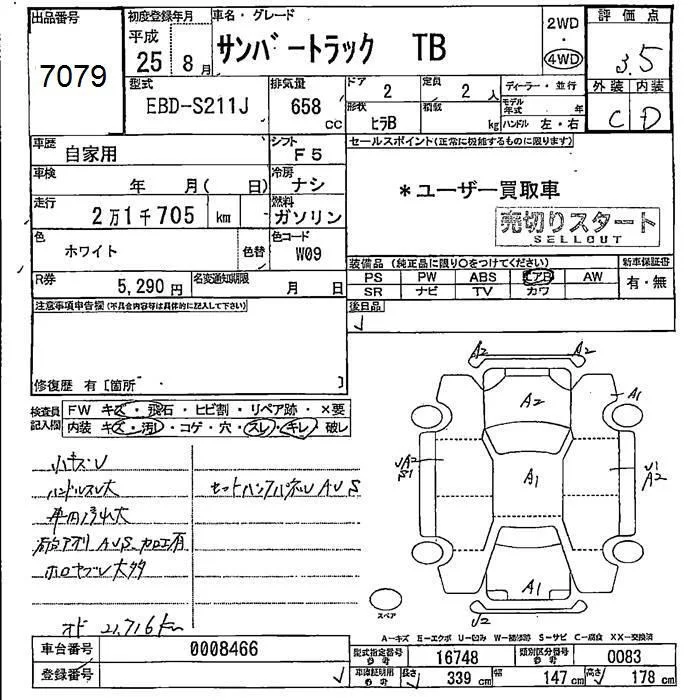 出品番号
7079
初度登録年月
平成
25 8月
車名・グレード
サンバートラック TB
2WD
4WD
評価点
3.5
外装 内装
C D
型式
EBD-S211J
排気量
658
CC
ドア
2
定員
2 人
形状
ヒラB
積載
kg
ディーラー・並行
モデル年式 年
ハンドル 左・右
車歴
自家用
シフト
F5
車検
年 月( 日)
冷房
ナシ
走行
2万1千705 km
燃料
ガソリン
色
ホワイト
色替
色コード
W09
R券
5,290 円
名変通知期限
月 日
セールスポイント(正常に機能するものに限ります)
*ユーザー買取車
売切りスタート
SELLOUT
装備品(純正品に限り○をつけてください)
新車保証書
PS PW ABS エアB AW
有・無
SR ナビ TV カワ
後日品
注意事項申告欄(不具合内容等は具体的に記入して下さい)
修復歴 有[箇所 ]
検査員記入欄
FW キズ・飛石・ヒビ割・リペア跡・×要
内装 キズ・汚レ・コゲ・穴・スレ・キレ・破レ
小キズU
ハンドルスレ大
車内汚れ大
AUS 加工有
オド 21,716km
A2 A2
A2
A1
UA2
S1
A1
U1
A2
A1
U2
スペア
A-キズ E-エクボ U-凹み W-補修跡 S-サビ C-腐食 XX-交換済
車台番号
0008466
登録番号
型式指定番号
参考
16748
類別区分番号
参考
0083
車庫証明用
参考
長さ 339 cm 幅 147 cm 高さ 178 cm